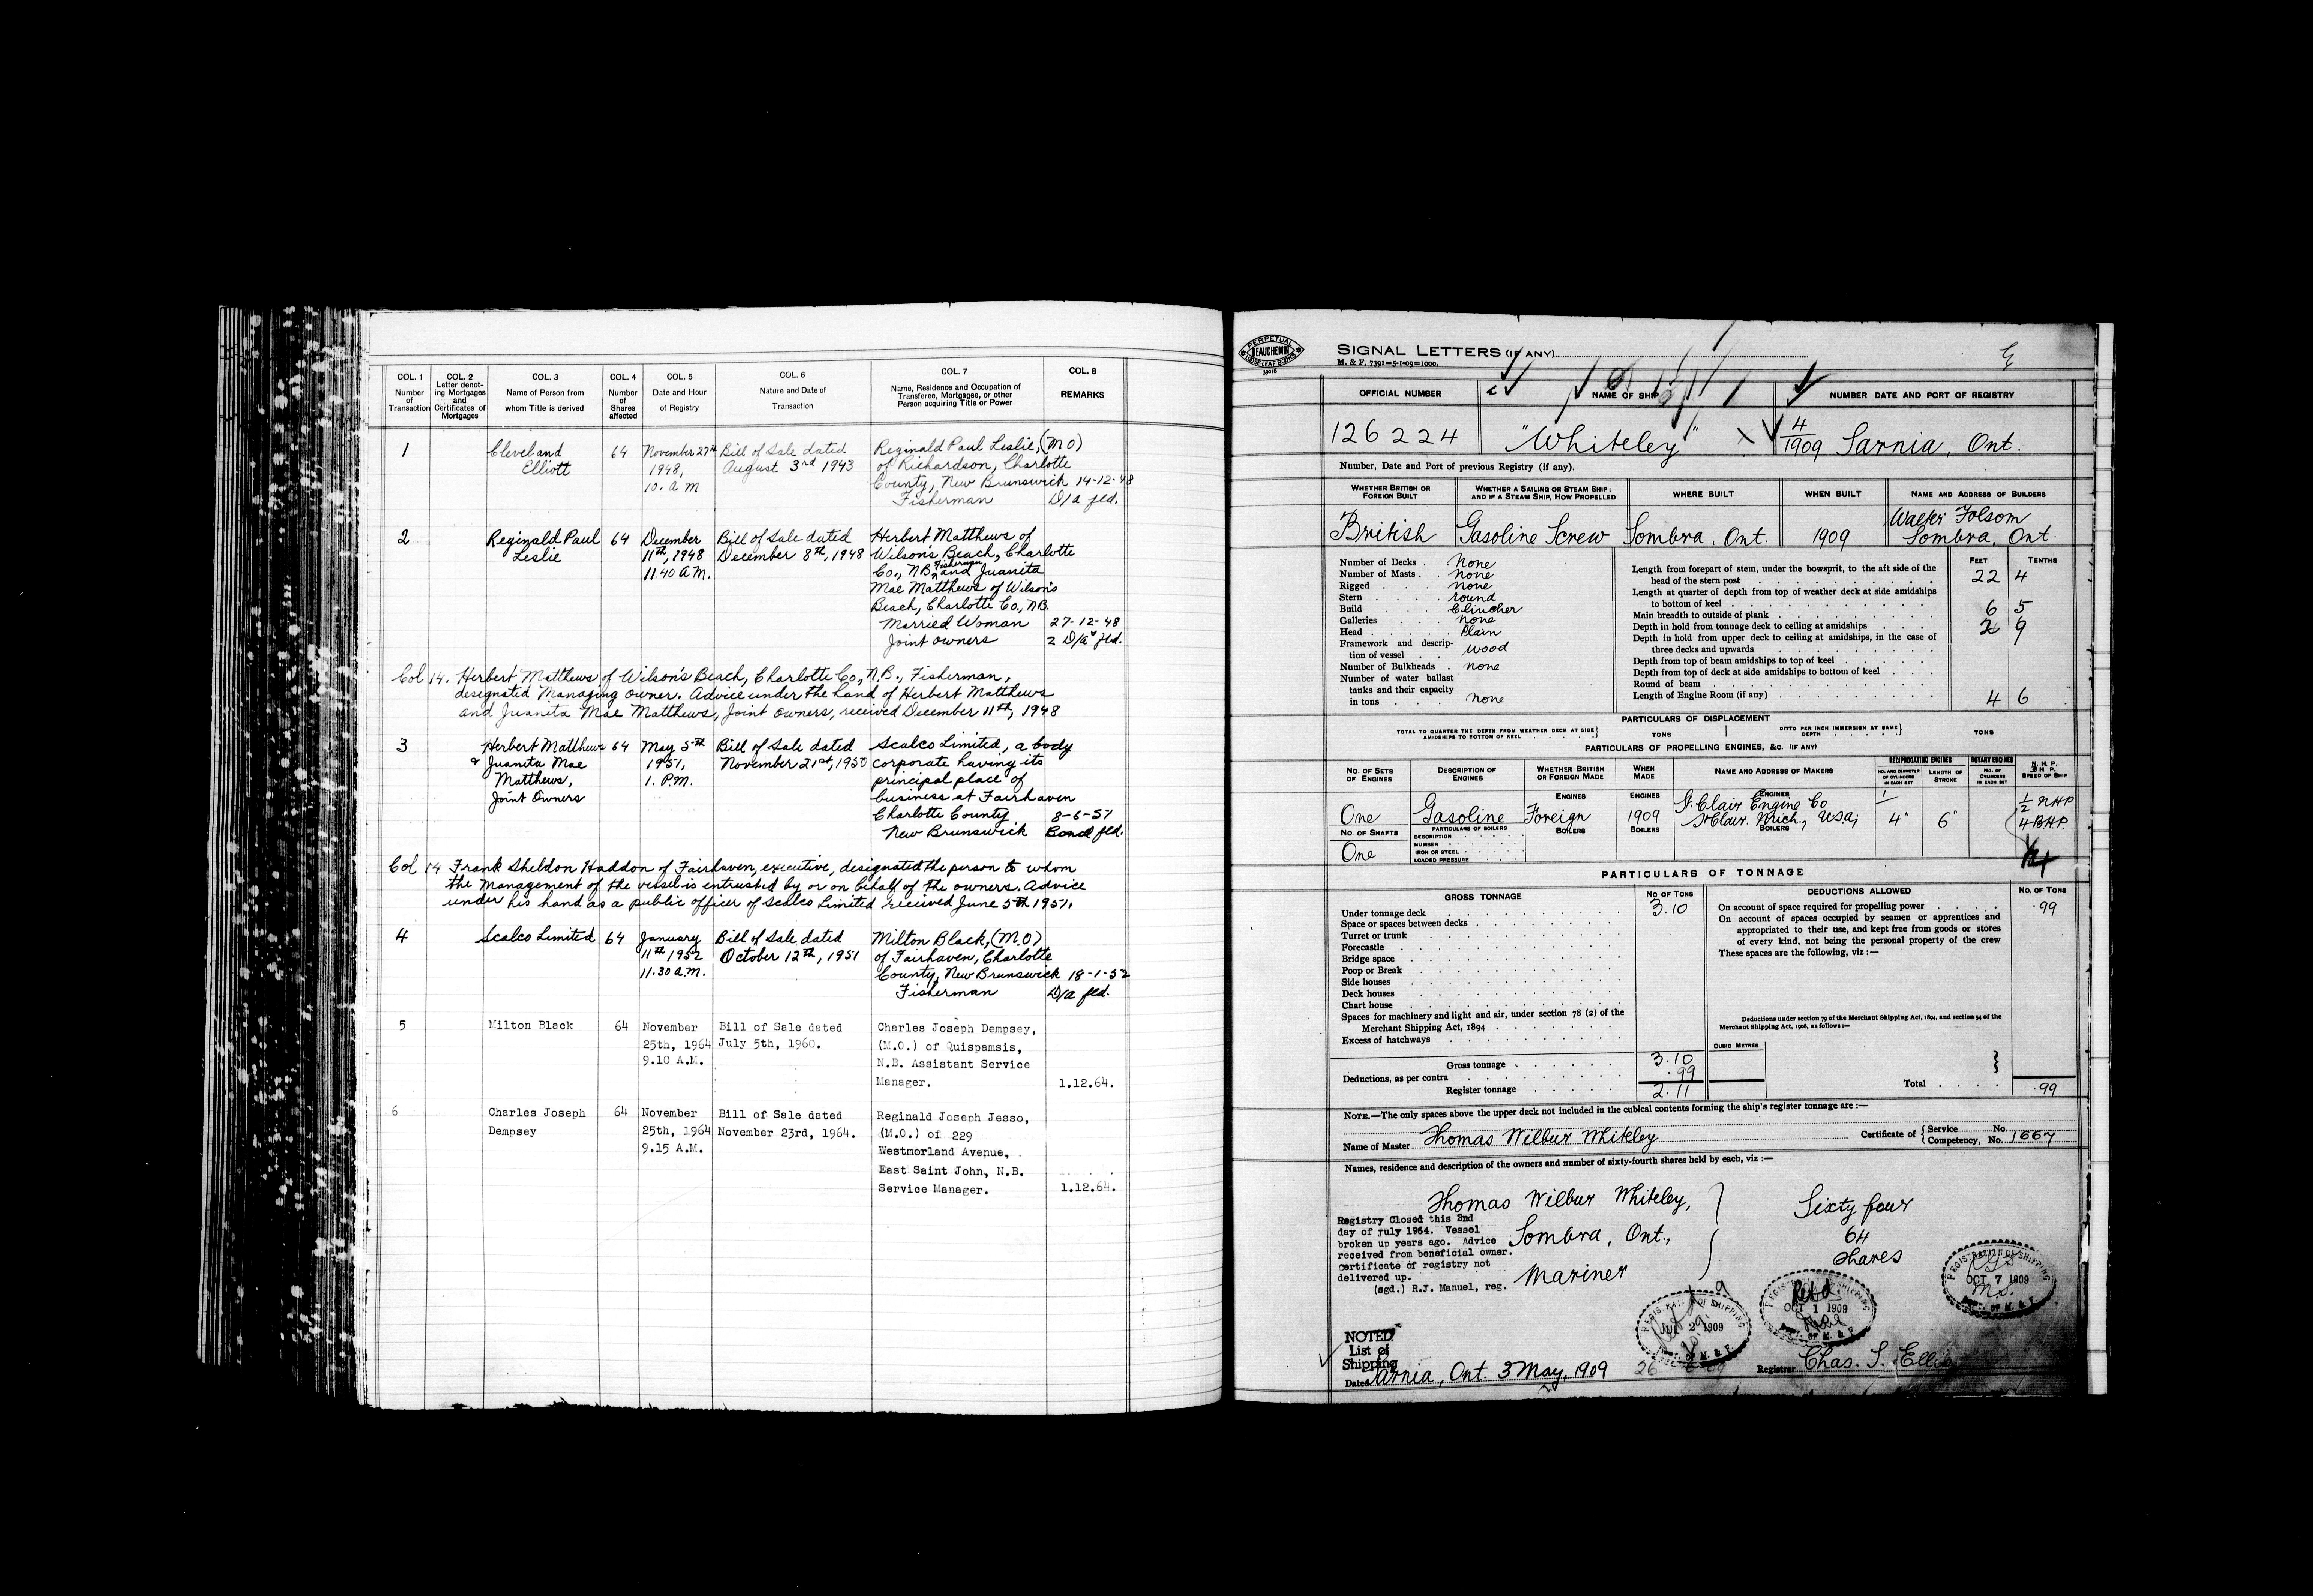 COL. 1 COL. 2 COL. 3 COL. 4 COL. 5 COL. 6 COL. 7 COL. 8
Number of Transaction
Letter denoting Mortgages and Certificates of Mortgages
Name of Person from whom Title is derived
Number of Shares affected
Date and Hour of Registry
Nature and Date of Transaction
Name, Residence and Occupation of Transferee, Mortgagee, or other Person acquiring Title or Power
REMARKS
1 Cleveland 64 November 27th Bill of Sale dated Reginald Paul Leslie, (M O)
Elliott 1948, August 3rd 1943 of Richardson, Charlotte
10. a M County, New Brunswick 14-12-48
Fisherman D/a fld.
2 Reginald Paul 64 December Bill of Sale dated Herbert Matthews of
Leslie 11th, 1948 December 8th, 1948 Wilson's Beach, Charlotte
11.40 A M. Co., N.B., Fisherman and Juanita
Mae Matthews of Wilson's
Beach, Charlotte Co., N.B.
Married Woman 27-12-48
Joint owners 2 D/a's fld.
Col 14. Herbert Matthews of Wilson's Beach, Charlotte Co., N.B., Fisherman,
designated Managing owner. Advice under the hand of Herbert Matthews
and Juanita Mae Matthews, Joint owners, received December 11th, 1948
3 Herbert Matthews 64 May 5th Bill of Sale dated Scalco Limited, a body
& Juanita Mae 1951, November 21st, 1950 corporate having its
Matthews, 1. P.M. principal place of
Joint Owners business at Fairhaven
Charlotte County 8-6-51
New Brunswick Bond fld.
Col 14 Frank Sheldon Haddon of Fairhaven, executive, designated the person to whom
the management of the vessel is entrusted by or on behalf of the owners. Advice
under his hand as a public officer of Scalco Limited received June 5th 1951.
4 Scalco Limited 64 January Bill of Sale dated Milton Black, (M.O)
11th 1952 October 12th, 1951 of Fairhaven, Charlotte
11.30 a.m. County, New Brunswick 18-1-52
Fisherman D/a fld.
5 Milton Black 64 November Bill of Sale dated Charles Joseph Dempsey,
25th, 1964 July 5th, 1960. (M.O.) of Quispamsis,
9.10 A.M. N.B. Assistant Service
Manager. 1.12.64.
6 Charles Joseph 64 November Bill of Sale dated Reginald Joseph Jesso,
Dempsey 25th, 1964 November 23rd, 1964. (M.O.) of 229
9.15 A.M. Westmorland Avenue,
East Saint John, N.B.
Service Manager. 1.12.64.
PERPETUAL
BEAUCHEMIN
LOOSE LEAF BOOKS
39016
SIGNAL LETTERS (IF ANY)
M. & F. 7391=5-1-09=1000.
OFFICIAL NUMBER NAME OF SHIP NUMBER DATE AND PORT OF REGISTRY
126224 "Whiteley" 4/1909 Sarnia, Ont.
Number, Date and Port of previous Registry (if any).
WHETHER BRITISH OR FOREIGN BUILT
WHETHER A SAILING OR STEAM SHIP; AND IF A STEAM SHIP, HOW PROPELLED
WHERE BUILT WHEN BUILT NAME AND ADDRESS OF BUILDERS
British Gasoline Screw Sombra, Ont. 1909 Walter Folsom
Sombra, Ont.
Number of Decks None
Number of Masts none
Rigged none
Stern round
Build Clincher
Galleries none
Head Plain
Framework and description of vessel wood
Number of Bulkheads none
Number of water ballast tanks and their capacity in tons none
FEET TENTHS
Length from forepart of stem, under the bowsprit, to the aft side of the
head of the stern post 22 4
Length at quarter of depth from top of weather deck at side amidships
to bottom of keel
Main breadth to outside of plank 6 5
Depth in hold from tonnage deck to ceiling at amidships 2 9
Depth in hold from upper deck to ceiling at amidships, in the case of
three decks and upwards
Depth from top of beam amidships to top of keel
Depth from top of deck at side amidships to bottom of keel
Round of beam
Length of Engine Room (if any) 4 6
PARTICULARS OF DISPLACEMENT
TOTAL TO QUARTER THE DEPTH FROM WEATHER DECK AT SIDE AMIDSHIPS TO BOTTOM OF KEEL TONS
DITTO PER INCH IMMERSION AT SAME DEPTH TONS
PARTICULARS OF PROPELLING ENGINES, &C. (IF ANY)
NO. OF SETS OF ENGINES
DESCRIPTION OF ENGINES
WHETHER BRITISH OR FOREIGN MADE
WHEN MADE
NAME AND ADDRESS OF MAKERS
RECIPROCATING ENGINES
NO. AND DIAMETER OF CYLINDERS IN EACH SET
LENGTH OF STROKE
ROTARY ENGINES
NO. OF CYLINDERS IN EACH SET
N. H. P.
SPEED OF SHIP
ENGINES ENGINES ENGINES
One Gasoline Foreign 1909 St. Clair Engine Co 1 1/2 N.H.P
St Clair. Mich., U.S.A. 4" 6" 4 B.H.P.
NO. OF SHAFTS PARTICULARS OF BOILERS BOILERS BOILERS BOILERS
DESCRIPTION
NUMBER
IRON OR STEEL
LOADED PRESSURE
One
PARTICULARS OF TONNAGE
GROSS TONNAGE NO OF TONS DEDUCTIONS ALLOWED NO. OF TONS
Under tonnage deck 3.10
Space or spaces between decks
Turret or trunk
Forecastle
Bridge space
Poop or Break
Side houses
Deck houses
Chart house
Spaces for machinery and light and air, under section 78 (2) of the
Merchant Shipping Act, 1894
Excess of hatchways
On account of space required for propelling power .99
On account of spaces occupied by seamen or apprentices and
appropriated to their use, and kept free from goods or stores
of every kind, not being the personal property of the crew
These spaces are the following, viz :—
Deductions under section 79 of the Merchant Shipping Act, 1894, and section 54 of the
Merchant Shipping Act, 1906, as follows :—
CUBIC METRES
Gross tonnage 3.10
Deductions, as per contra .99
Register tonnage 2.11
Total .99
NOTE.—The only spaces above the upper deck not included in the cubical contents forming the ship's register tonnage are :—
Name of Master Thomas Wilbur Whiteley Certificate of Service No.
Competency, No. 1667
Names, residence and description of the owners and number of sixty-fourth shares held by each, viz :—
Thomas Wilbur Whiteley, Sixty four
Sombra, Ont., 64
Mariner Shares
Registry Closed this 2nd
day of July 1964. Vessel
broken up years ago. Advice
received from beneficial owner.
Certificate of registry not
delivered up.
(sgd.) R.J. Manuel, reg.
REGISTRATION OF SHIPPING
JUL 2 1909
DEPT. OF M. & F.
REGISTRATION OF SHIPPING
OCT 1 1909
DEPT. OF M. & F.
REGISTRATION OF SHIPPING
OCT 7 1909
DEPT. OF M. & F.
NOTED
List of
Shipping
Dated Sarnia, Ont. 3 May, 1909 Registrar Chas. S. Ellis